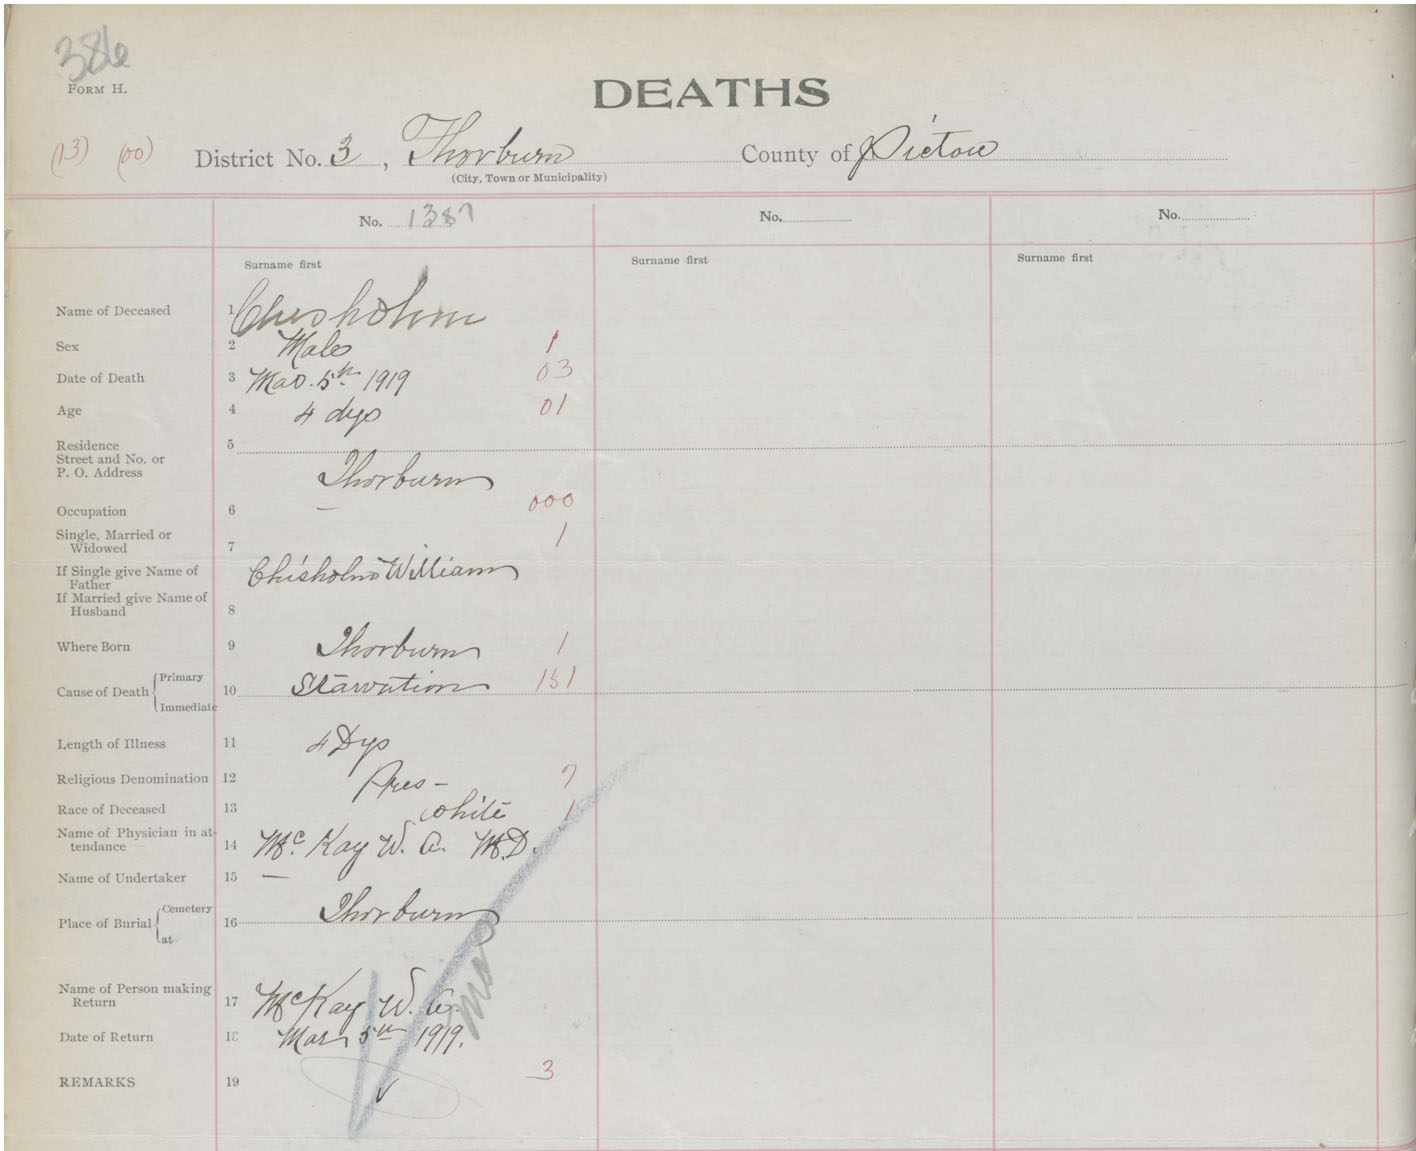 386
FORM H.
DEATHS
(13) (00) District No. 3, Thorburn County of Pictou
(City, Town or Municipality)
No. 1387 No. No.
Surname first Surname first Surname first
Name of Deceased 1 Chisholm
Sex 2 Male 1
Date of Death 3 Mar. 5th 1919 03
Age 4 4 dys 01
Residence 5
Street and No. or
P. O. Address Thorburn
Occupation 6 — 000
Single, Married or
Widowed 7 1
If Single give Name of Chisholm William
Father
If Married give Name of
Husband 8
Where Born 9 Thorburn 1
Cause of Death Primary 10 Starvation 151
Immediate
Length of Illness 11 4 Dys
Religious Denomination 12 Pres – 7
Race of Deceased 13 White 1
Name of Physician in at-
tendance 14 McKay W. A. M.D.
Name of Undertaker 15 —
Place of Burial Cemetery 16 Thorburn
at
Name of Person making
Return 17 McKay W. A.
Date of Return 18 Mar 5th 1919.
REMARKS 19 3